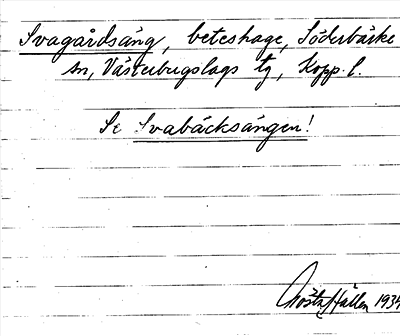 Svagårdsäng, beteshage, Söderbärke
sn, Västerbergslags tg, Kopp. l.
Se Svabäcksängen!
Gösta Hallen 1934